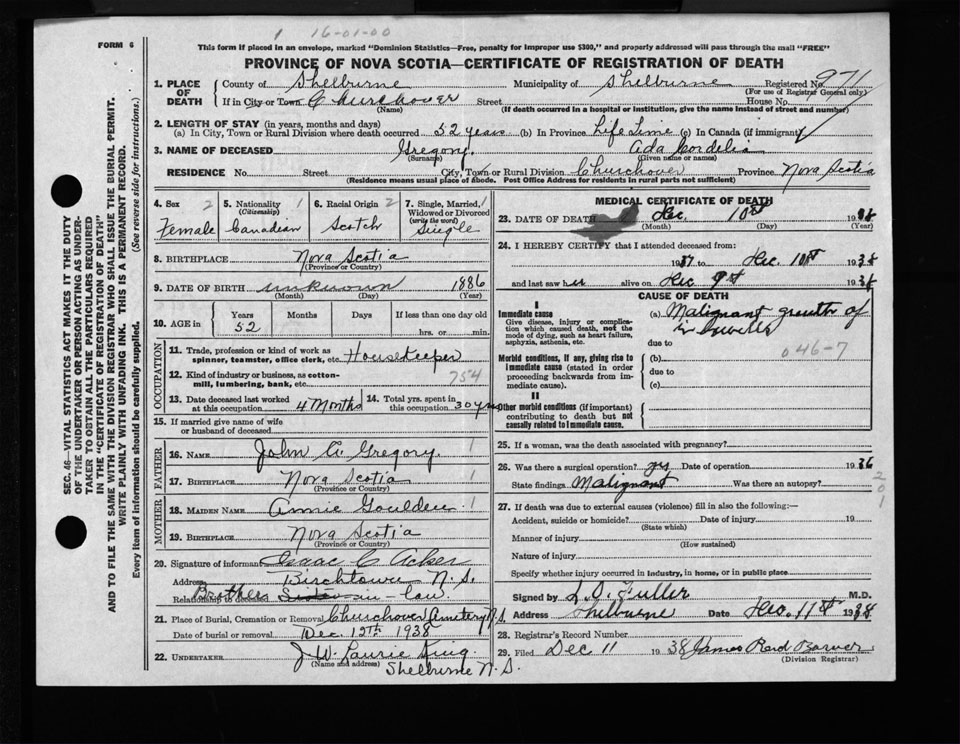 1 16-01-00
FORM 6
This form if placed in an envelope, marked "Dominion Statistics—Free, penalty for improper use $300," and properly addressed will pass through the mail "FREE"
PROVINCE OF NOVA SCOTIA—CERTIFICATE OF REGISTRATION OF DEATH
1. PLACE OF DEATH County of Shelburne Municipality of Shelburne Registered No. 971
(For use of Registrar General only)
If in City or Town Churchover Street House No.
(Name) (If death occurred in a hospital or institution, give the name instead of street and number)
2. LENGTH OF STAY (in years, months and days)
(a) In City, Town or Rural Division where death occurred 52 years (b) In Province Life Time (c) In Canada (if immigrant)
3. NAME OF DECEASED Gregory Ada Cordelia
(Surname) (Given name or names)
RESIDENCE No. Street City, Town or Rural Division Churchover Province Nova Scotia
(Residence means usual place of abode. Post Office Address for residents in rural parts not sufficient)
4. Sex 2 Female
5. Nationality 1 (Citizenship) Canadian
6. Racial Origin 2 Scotch
7. Single, Married, Widowed or Divorced (write the word) 1 Single
8. BIRTHPLACE Nova Scotia
(Province or Country)
9. DATE OF BIRTH unknown 1886
(Month) (Day) (Year)
10. AGE in Years 52 Months Days If less than one day old
hrs. or min.
OCCUPATION
11. Trade, profession or kind of work as spinner, teamster, office clerk, etc. Housekeeper
12. Kind of industry or business, as cotton-mill, lumbering, bank, etc. 754
13. Date deceased last worked at this occupation 4 Months
14. Total yrs. spent in this occupation 30 yrs
15. If married give name of wife or husband of deceased
FATHER
16. NAME John A. Gregory 1
17. BIRTHPLACE Nova Scotia 1
(Province or Country)
MOTHER
18. MAIDEN NAME Annie Goulden 1
19. BIRTHPLACE Nova Scotia
(Province or Country)
20. Signature of informant Isaac C. Acker
Address Birchtown N.S.
Relationship to deceased Brother in-law
21. Place of Burial, Cremation or Removal Churchover Cemetery N.S.
Date of burial or removal Dec. 12th 1938
22. UNDERTAKER J. W. Laurie King
(Name and address) Shelburne N.S.
MEDICAL CERTIFICATE OF DEATH
23. DATE OF DEATH Dec. 10th 1938
(Month) (Day) (Year)
24. I HEREBY CERTIFY that I attended deceased from:
1937 to Dec. 10th 1938
and last saw her alive on Dec 9th 1938
CAUSE OF DEATH
I
Immediate cause
Give disease, injury or complication which caused death, not the mode of dying, such as heart failure, asphyxia, asthenia, etc.
(a) Malignant growth of
due to
046-7
Morbid conditions, if any, giving rise to immediate cause (stated in order proceeding backwards from immediate cause).
(b)
due to
(c)
II
Other morbid conditions (if important) contributing to death but not causally related to immediate cause.
25. If a woman, was the death associated with pregnancy?
26. Was there a surgical operation? yes Date of operation 1936
State findings Malignant Was there an autopsy?
201
27. If death was due to external causes (violence) fill in also the following:—
Accident, suicide or homicide? Date of injury 19
(State which)
Manner of injury
(How sustained)
Nature of injury
Specify whether injury occurred in industry, in home, or in public place
Signed by L. O. Fuller M.D.
Address Shelburne Date Dec. 11th 1938
28. Registrar's Record Number
29. Filed Dec 11 1938 James Reid Bower
(Division Registrar)
SEC. 46—VITAL STATISTICS ACT MAKES IT THE DUTY
OF THE UNDERTAKER OR PERSON ACTING AS UNDER-
TAKER TO OBTAIN ALL THE PARTICULARS REQUIRED
IN THE "CERTIFICATE OF REGISTRATION OF DEATH"
AND TO FILE THE SAME WITH THE DIVISION REGISTRAR WHO SHALL ISSUE THE BURIAL PERMIT.
WRITE PLAINLY WITH UNFADING INK. THIS IS A PERMANENT RECORD.
Every item of information should be carefully supplied. (See reverse side for instructions.)